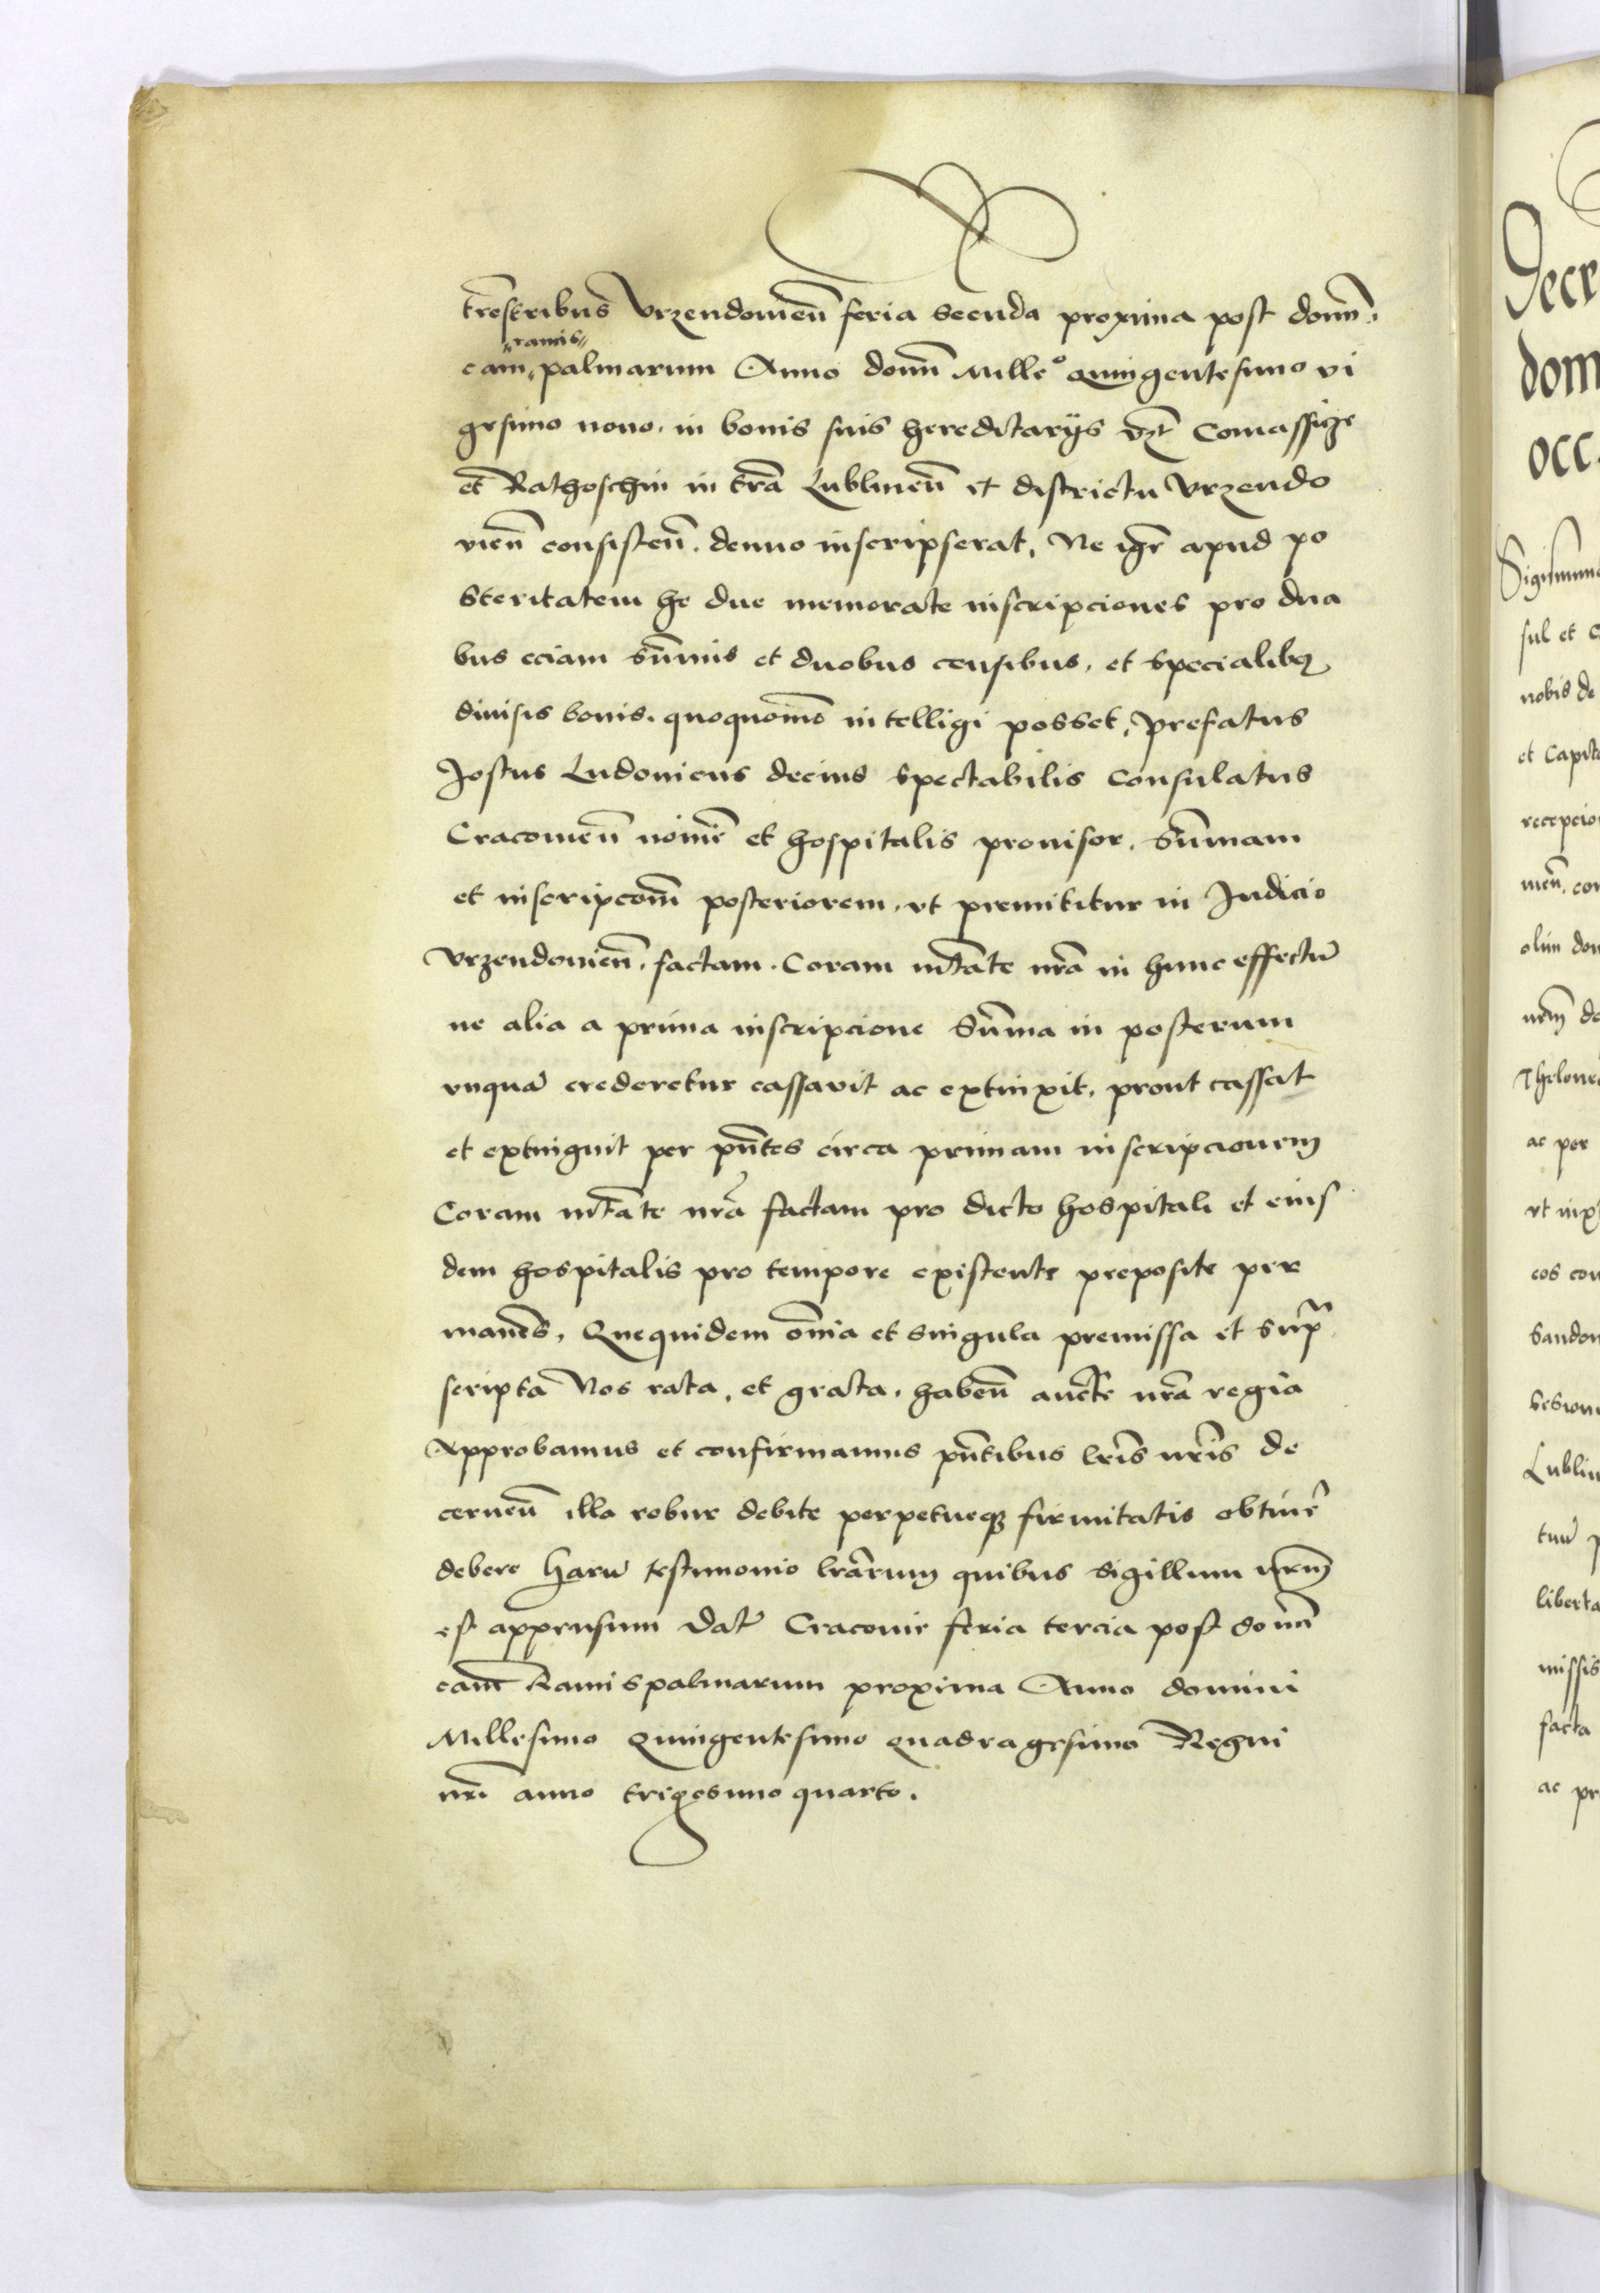 tr̄estribus Vrzendouien̄ feria secūda proxima post domī
"ramis"
cam palmarum Anno domī Mille° Quingentesimo vi
gesimo nono. in bonis suis hereditarijs vzt Comassijze
et Rathoschin in tr̄a Lublinen̄ et districtu Vrzendo
vien̄ consisten̄. denuo inscripserat, Ne igr̄ apud po
steritatem he due memorate inscripciones pro dua
bus eciam sūmis et duobus censibus, et specialibꝫ
diuisis bonis. quoquomō intelligi posset, prefatus
Jostus Ludouicus decius spectabilis Consulatus
Cracouien̄ noīe et hospitalis prouisor. Sūmam
et inscripcōm posteriorem. vt premittitur in Judicio
Vrzendouien̄. factam. Coram mtāte nr̄a in hunc effectū
ne alia a prima inscripcione Sūma in posterum
vnquā crederetur cassauit ac extinxit, prout cassat
et extinguit per pn̄tes circa primam inscripcionem
Coram mtāte nr̄a factam pro dicto hospitali et eius
dem hospitalis pro tempore existente preposito per
manēs. Quequidem om̄ia et singula premissa et supra
scripta Nos rata, et grata. haben̄ aucte nr̄a regia
Approbamus et confirmamus pn̄tibus lr̄is nr̄is de
cernen̄ illa robur debite perpetueqꝫ firmitatis obtinēr
debere Harū testimonio lr̄arum quibus sigillum nr̄m
est appensum Dat̄ Cracouie feria tercia post domī
cam̄ Ramispalmarum proxima Anno domini
Millesimo Quingentesimo quadragesimo Regni
nr̄i anno trigesimo quarto.
Decr
dom
occ
Sigismun
sul et
nobis de
et Capit
recepcio
olim
nr̄m
ac per
eos con
Sandom
Lublin
liberta
missis
facta
ac pr